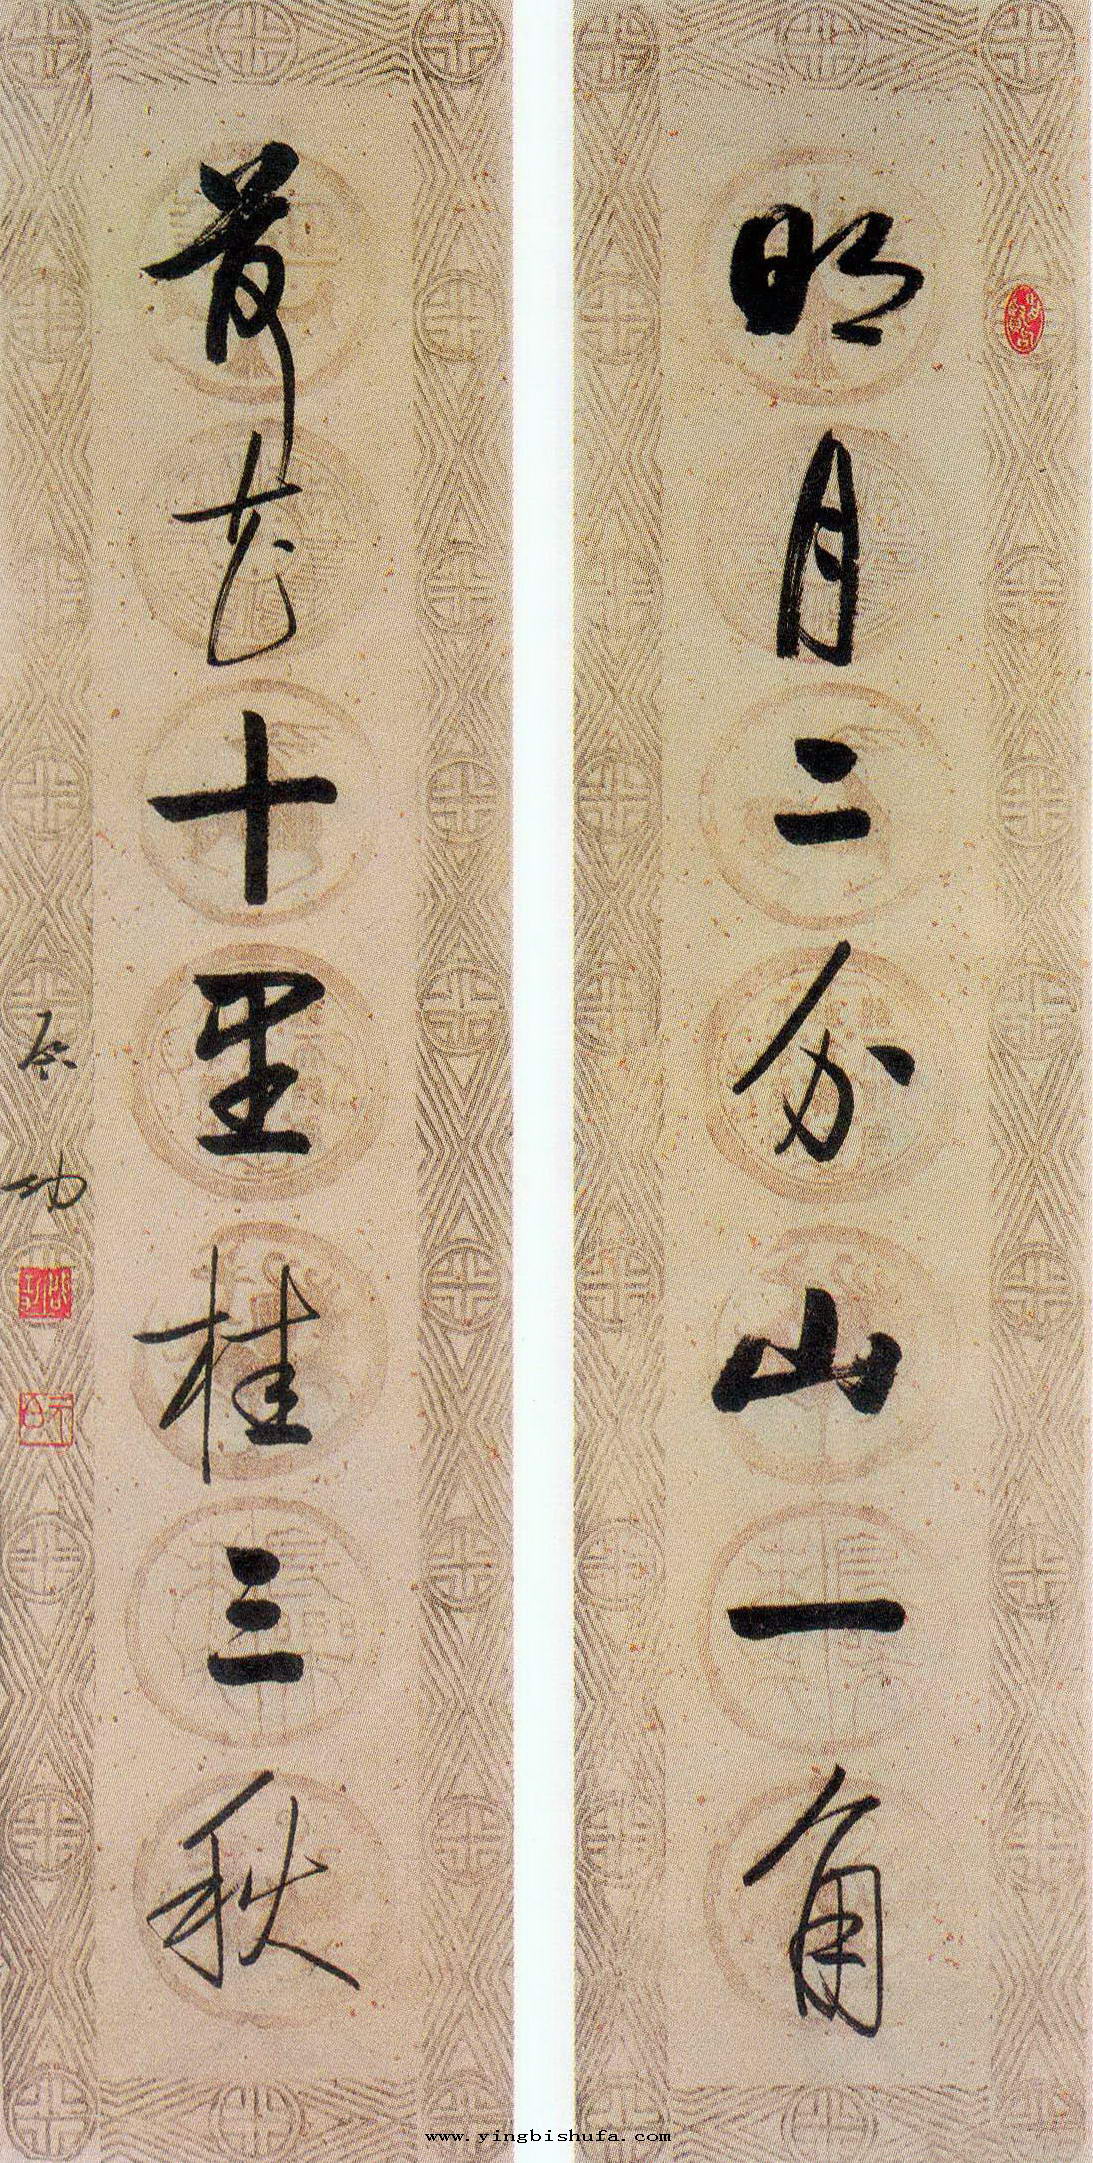 明月二分山一角
荷花十里桂三秋
启功
元白
www.yingbishufa.com